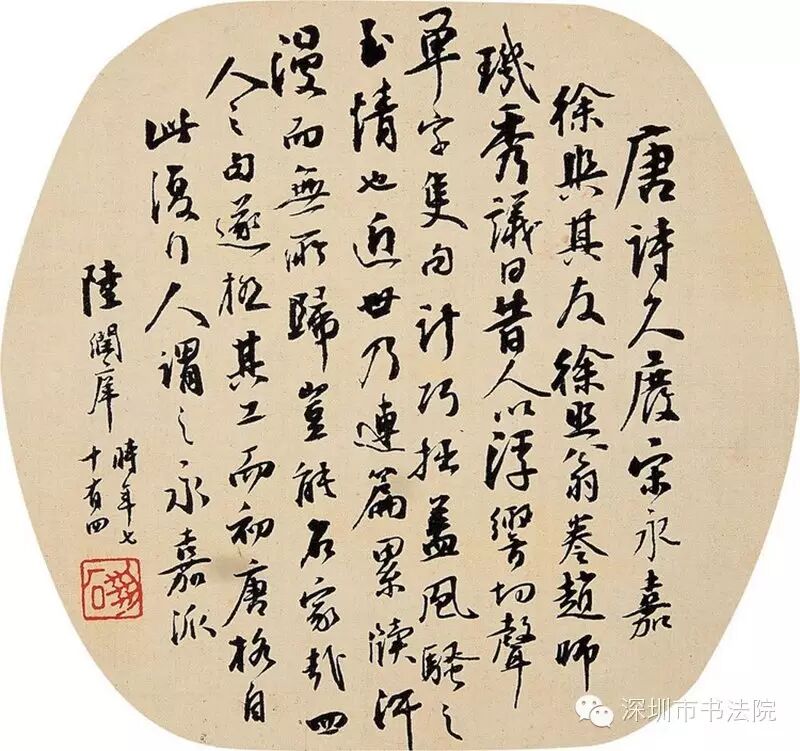 唐詩久廢宋永嘉
徐與其友徐照翁卷趙師
璣秀議曰昔人以浮響切聲
單字隻句計巧拙蓋風騷之
至情也近世乃連篇累牘汗
漫而無所歸豈能名家哉四
人之句遂極其工而初唐格自
此復行人謂之永嘉派
陸潤庠
時年七
十有四
深圳市书法院